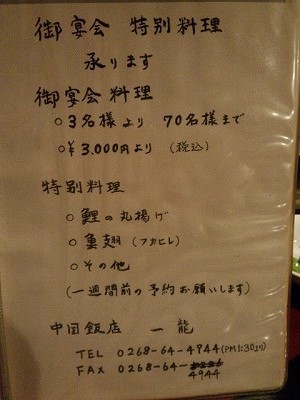 御宴会 特別料理
承ります
御宴会料理
○3名様より 70名様まで
○¥3.000円より (税込)
特別料理
○鯉の丸揚げ
○魚翅 (フカヒレ)
○その他
(一週間前の予約お願いします)
中国飯店 一龍
TEL 0268-64-4744(PM1:30より)
FAX 0268-64-
4944